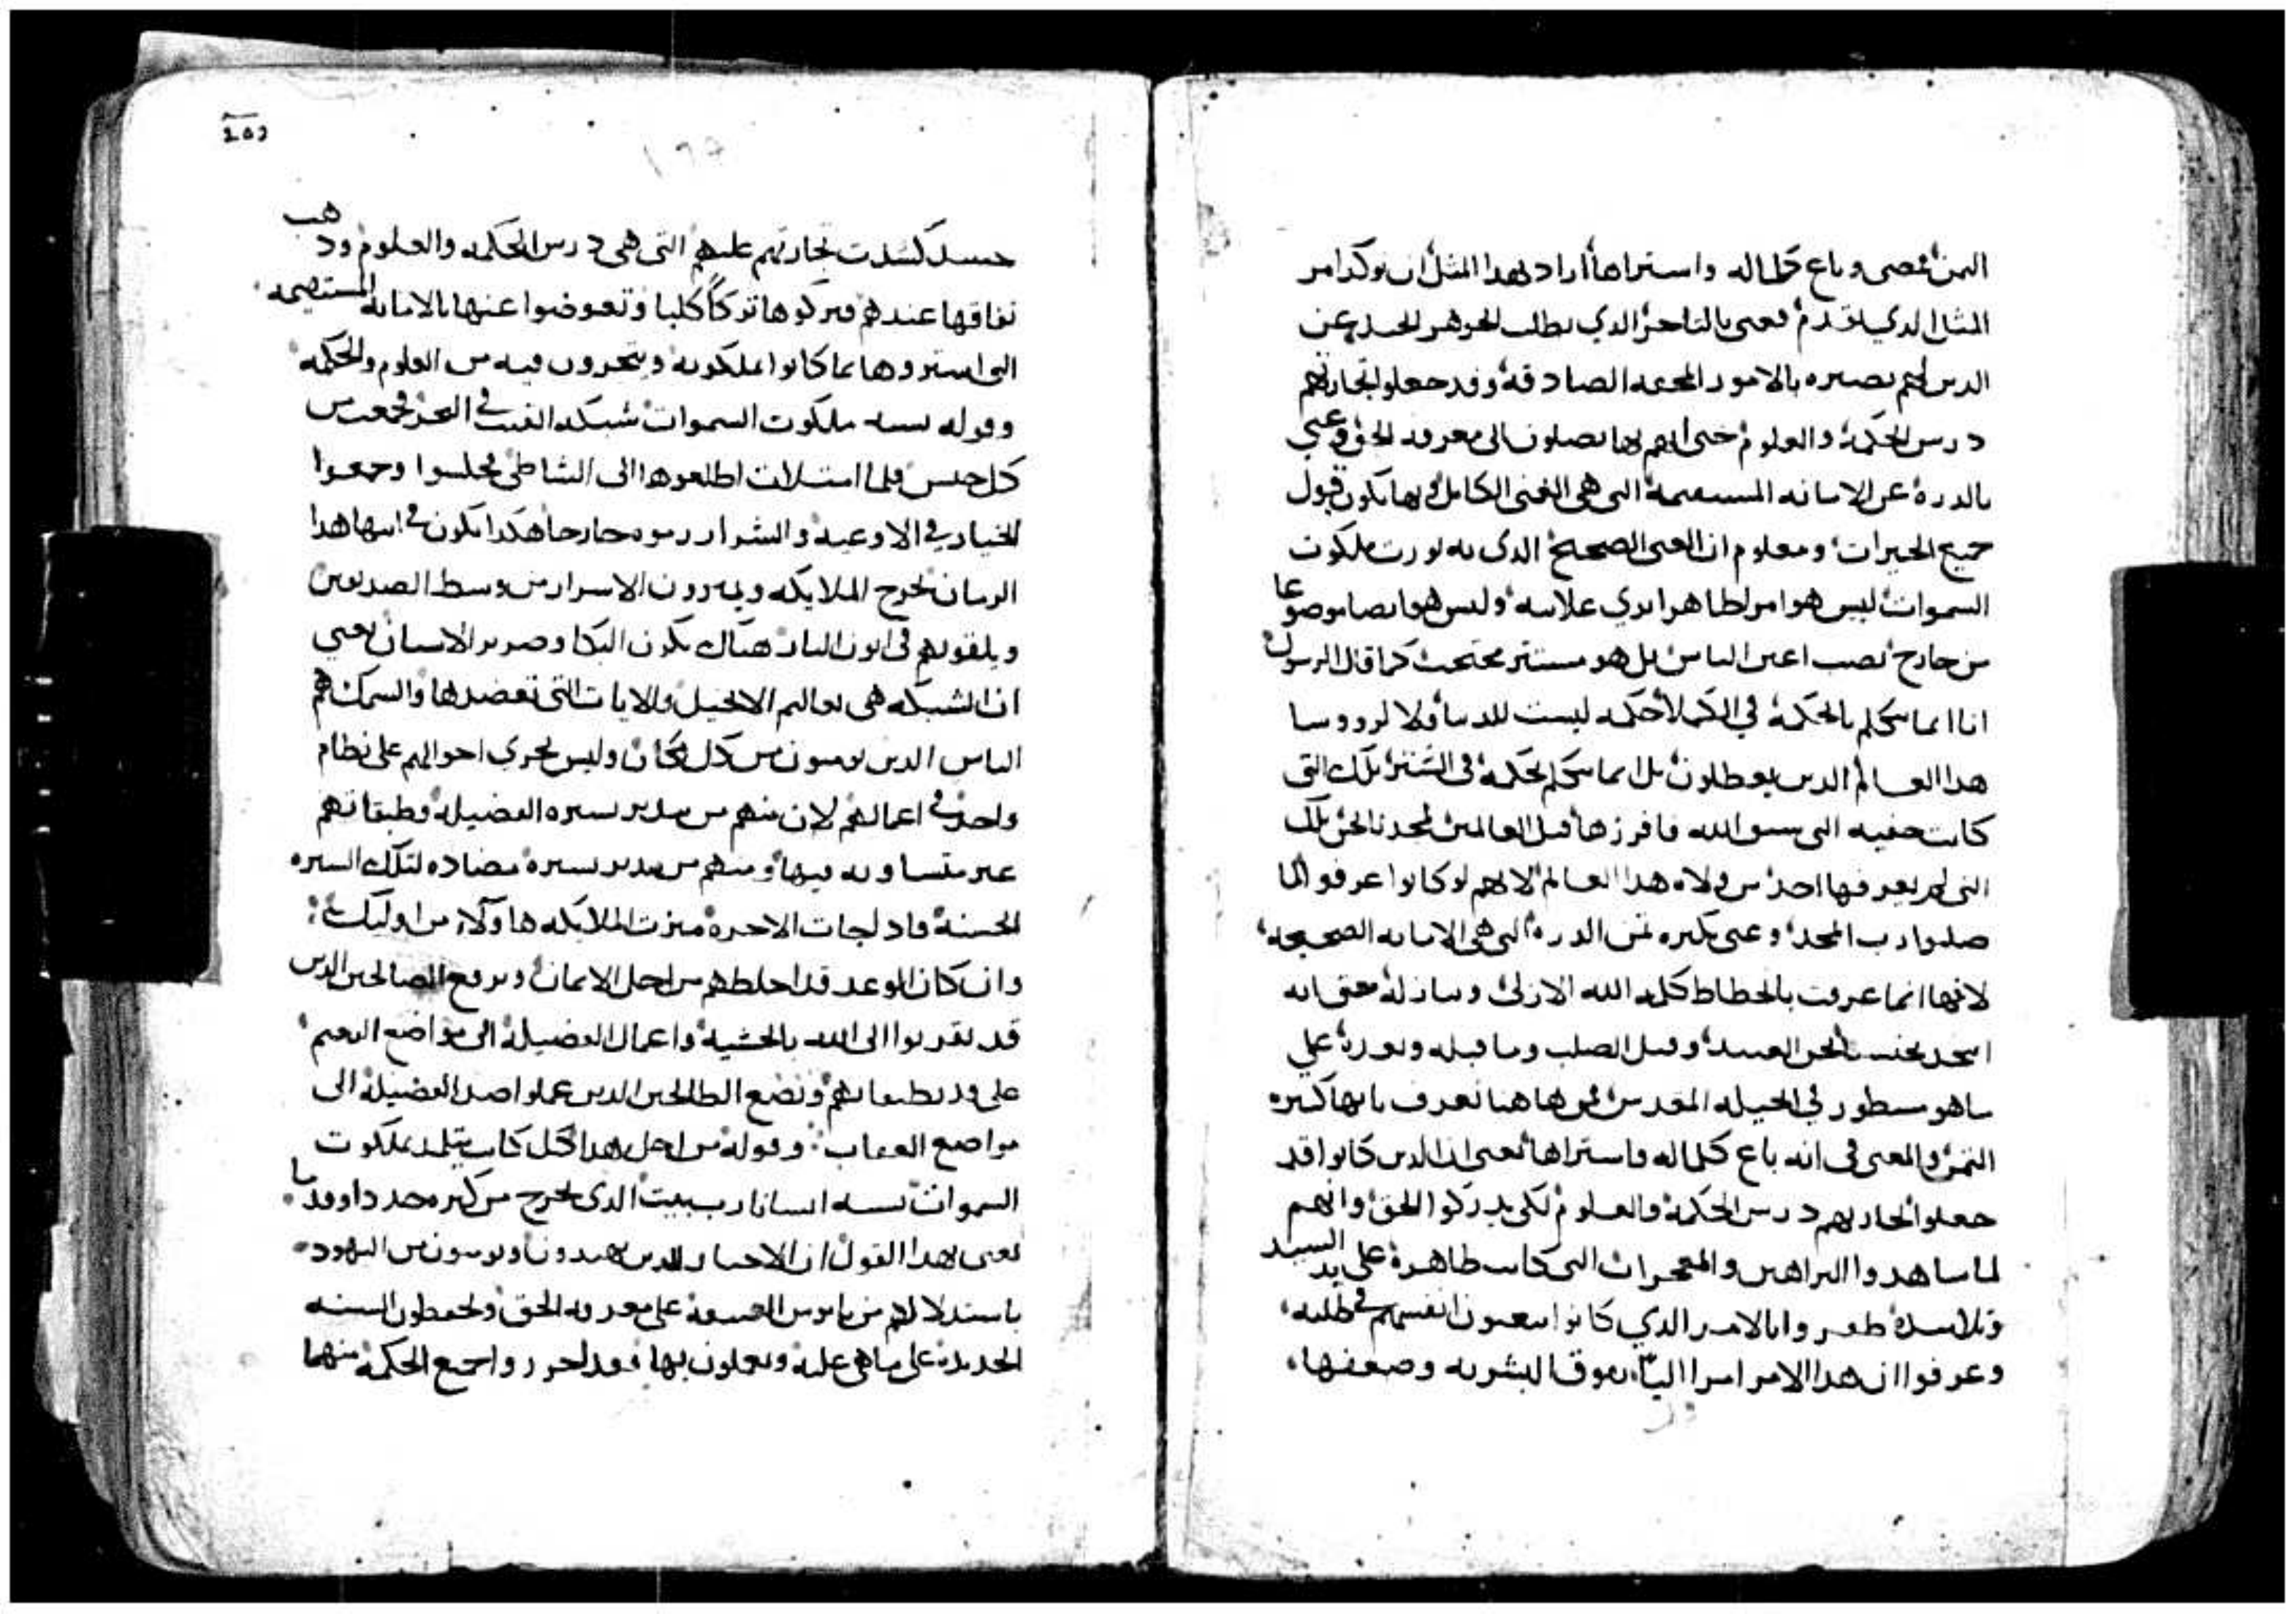 الثمن فمضى وباع كلماله واستراها اراد بهدا المثل ان يوكد امر
المثال الدي تقدم فعنى بالتاجر الدي يطلب الجوهر الجيد عن
الدين لهم بصيره بالامور المحمه الصادقه وقد جعلوا تجارتهم
درس الحكمه والعلوم حتى انهم بها يصلون الى معرفه الحق وعني
بالدره عن الامانه المستقيمه التي هي الغنى الكامل وبها يكون قبول
جميع الخيرات ومعلوم ان الغنى الصحيح الدى به نورت ملكوت
السموات ليس هو امر ظاهرا بدي علامه وليس هو ايضا موضوعا
من خارج نصب اعين الناس بل هو مستتر محتجب كما قال الرسول
انا انما نتكلم بالحكمه في الكملا حكمه ليست للدنيا ولا لرووسا
هدا العالم الدين يبطلون بل انما نتكلم بحكمه في السر تلك التى
كانت خفيه التى سبق الله فافرزها قبل العالمين لمجدنا نحن تلك
التى لم يعرفها احد من ولاه هدا العالم لانهم لو كانوا عرفوا لما
صلبوا رب المجد وعنى بكبره ثمن الدره التى هي الامانه الصحيحه
لانها انما عرفت بانحطاط كلمه الله الازلي ومنازلة حتى انه
اتحد بجنسنا نحن العبيد وقبل الصلب وما قبله وبعده على
ماهو مسطور في انجيله المقدس فمن هاهنا نعرف بانها كبيره
الثمن والمعنى فى انه باع كلماله واستراها يعنى ان الدين كانوا قد
جعلوا تجارتهم درس الحكمه والعلوم لكى يدركوا الحق وانهم
لما ساهدوا البراهين والمعجزات التى كانت ظاهرة على يد السيد
وتلاميده ظفروا بالامر الدي كانوا يتعبون انفسهم في طلبه
وعرفوا ان هدا الامر امرا الهيا يفوق البشريه وضعفها
حينيد كسدت تجارتهم عليهم التى هي درس الحكمه والعلوم ودهب
نفاقها عندهم فتركوها تركا كليا وتعوضوا عنها بالامانه المستقيمه
التى استروها بما كانوا يملكونه ويتجرون فيه من العلوم والحكمه
وقوله يشبه ملكوت السموات شبكه القيت في البحر فجمعت من
كل جنس فلما امتلات اطلعوها الى الشاطى فجلسوا وجمعوا
الخيار في الاوعيه والشرار رموه خارجا هكدا يكون في انتها هدا
الزمان تخرج الملايكه ويميزون الاشرار من وسط الصديقين
ويلقونهم فى اتون النار هناك يكون البكا وصرير الاسنان يعني
ان الشبكه هى تعاليم الانجيل والايات التى تعضدها والسمك هم
الناس الدين يومنون من كل مكان وليس تجري احوالهم على نظام
واحد في اعمالهم لان منهم من يدبر بسيره الفضيله وطبقاتهم
غير متساويه فيها ومنهم من يدبر بسيره مضاده لتلك السيره
الحسنة فاد لجات الاخره ميزت الملايكه هاولاء من اوليك
وان كان الوعد قد اخلطهم من اجل الايمان وترفع الصالحين الدين
قد تقربوا الى الله بالخشيه واعمال الفضيله الى مواضع النعيم
على قدر طبقاتهم وتضع الطالحين الدين عملوا ضد الفضيله الى
مواضع العقاب وقوله من اجل هدا كل كاتب يتلمد لملكوت
السموات يشبه انسانا رب بيت الدى يخرج من كنزه جدد او قدما
يعنى بهدا القول ان الاحبار الدين يهتدون ويومنون من اليهود
باستدلالهم من ناموس العتيقه على معرفه الحق ويحفظون السنه
الجديده على ماهي عليه ويعملون بها فقد احرزوا جميع الحكمة منهما